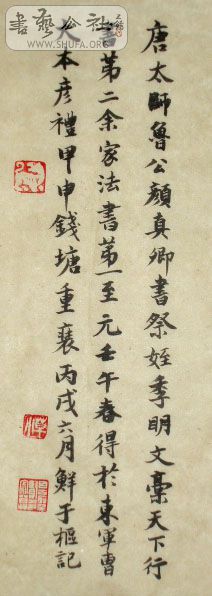 唐太師魯公顏真卿書祭姪季明文稾天下行
書第二余家法書第一至元壬午春得於東軍曹
大本彦禮甲申錢塘重裝丙戌六月鮮于樞記
書藝公社
WWW.SHUFA.ORG